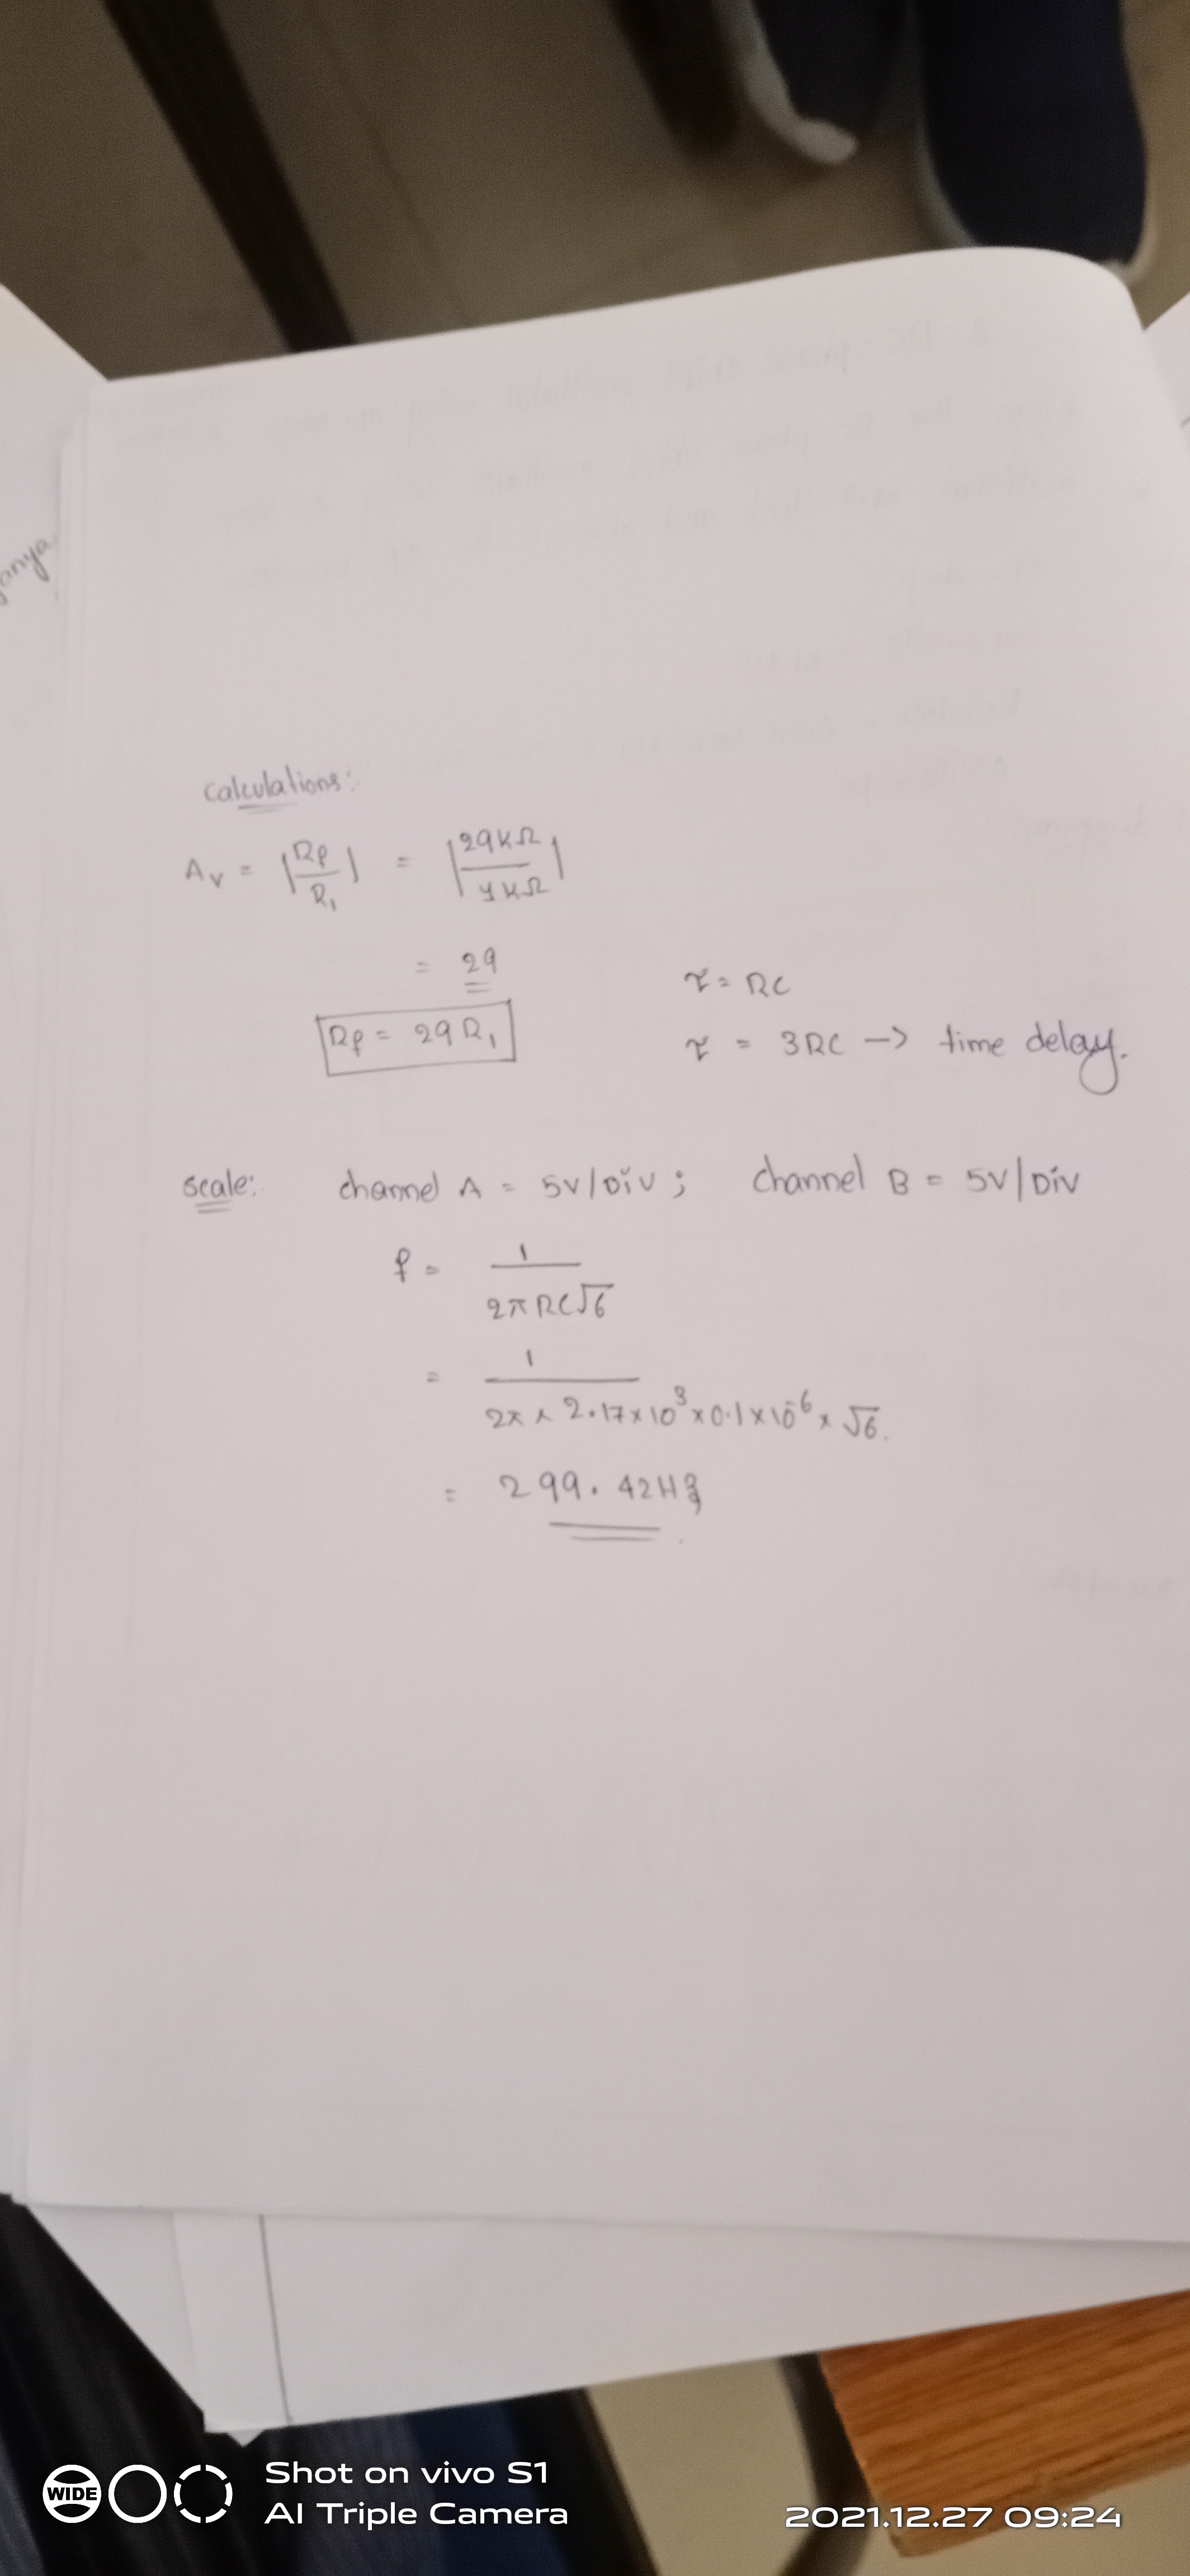 anya
calculations:
Av = |Rf/R1| = |29KΩ/1KΩ|
= 29
τ = RC
Rf = 29R1
τ = 3RC -> time delay.
scale: channel A = 5V/Div ; channel B = 5V/Div
f = 1/2πRC√6
= 1/2π × 2.17×10³×0.1×10⁻⁶×√6.
= 299.42Hz
WIDE
Shot on vivo S1
AI Triple Camera
2021.12.27 09:24